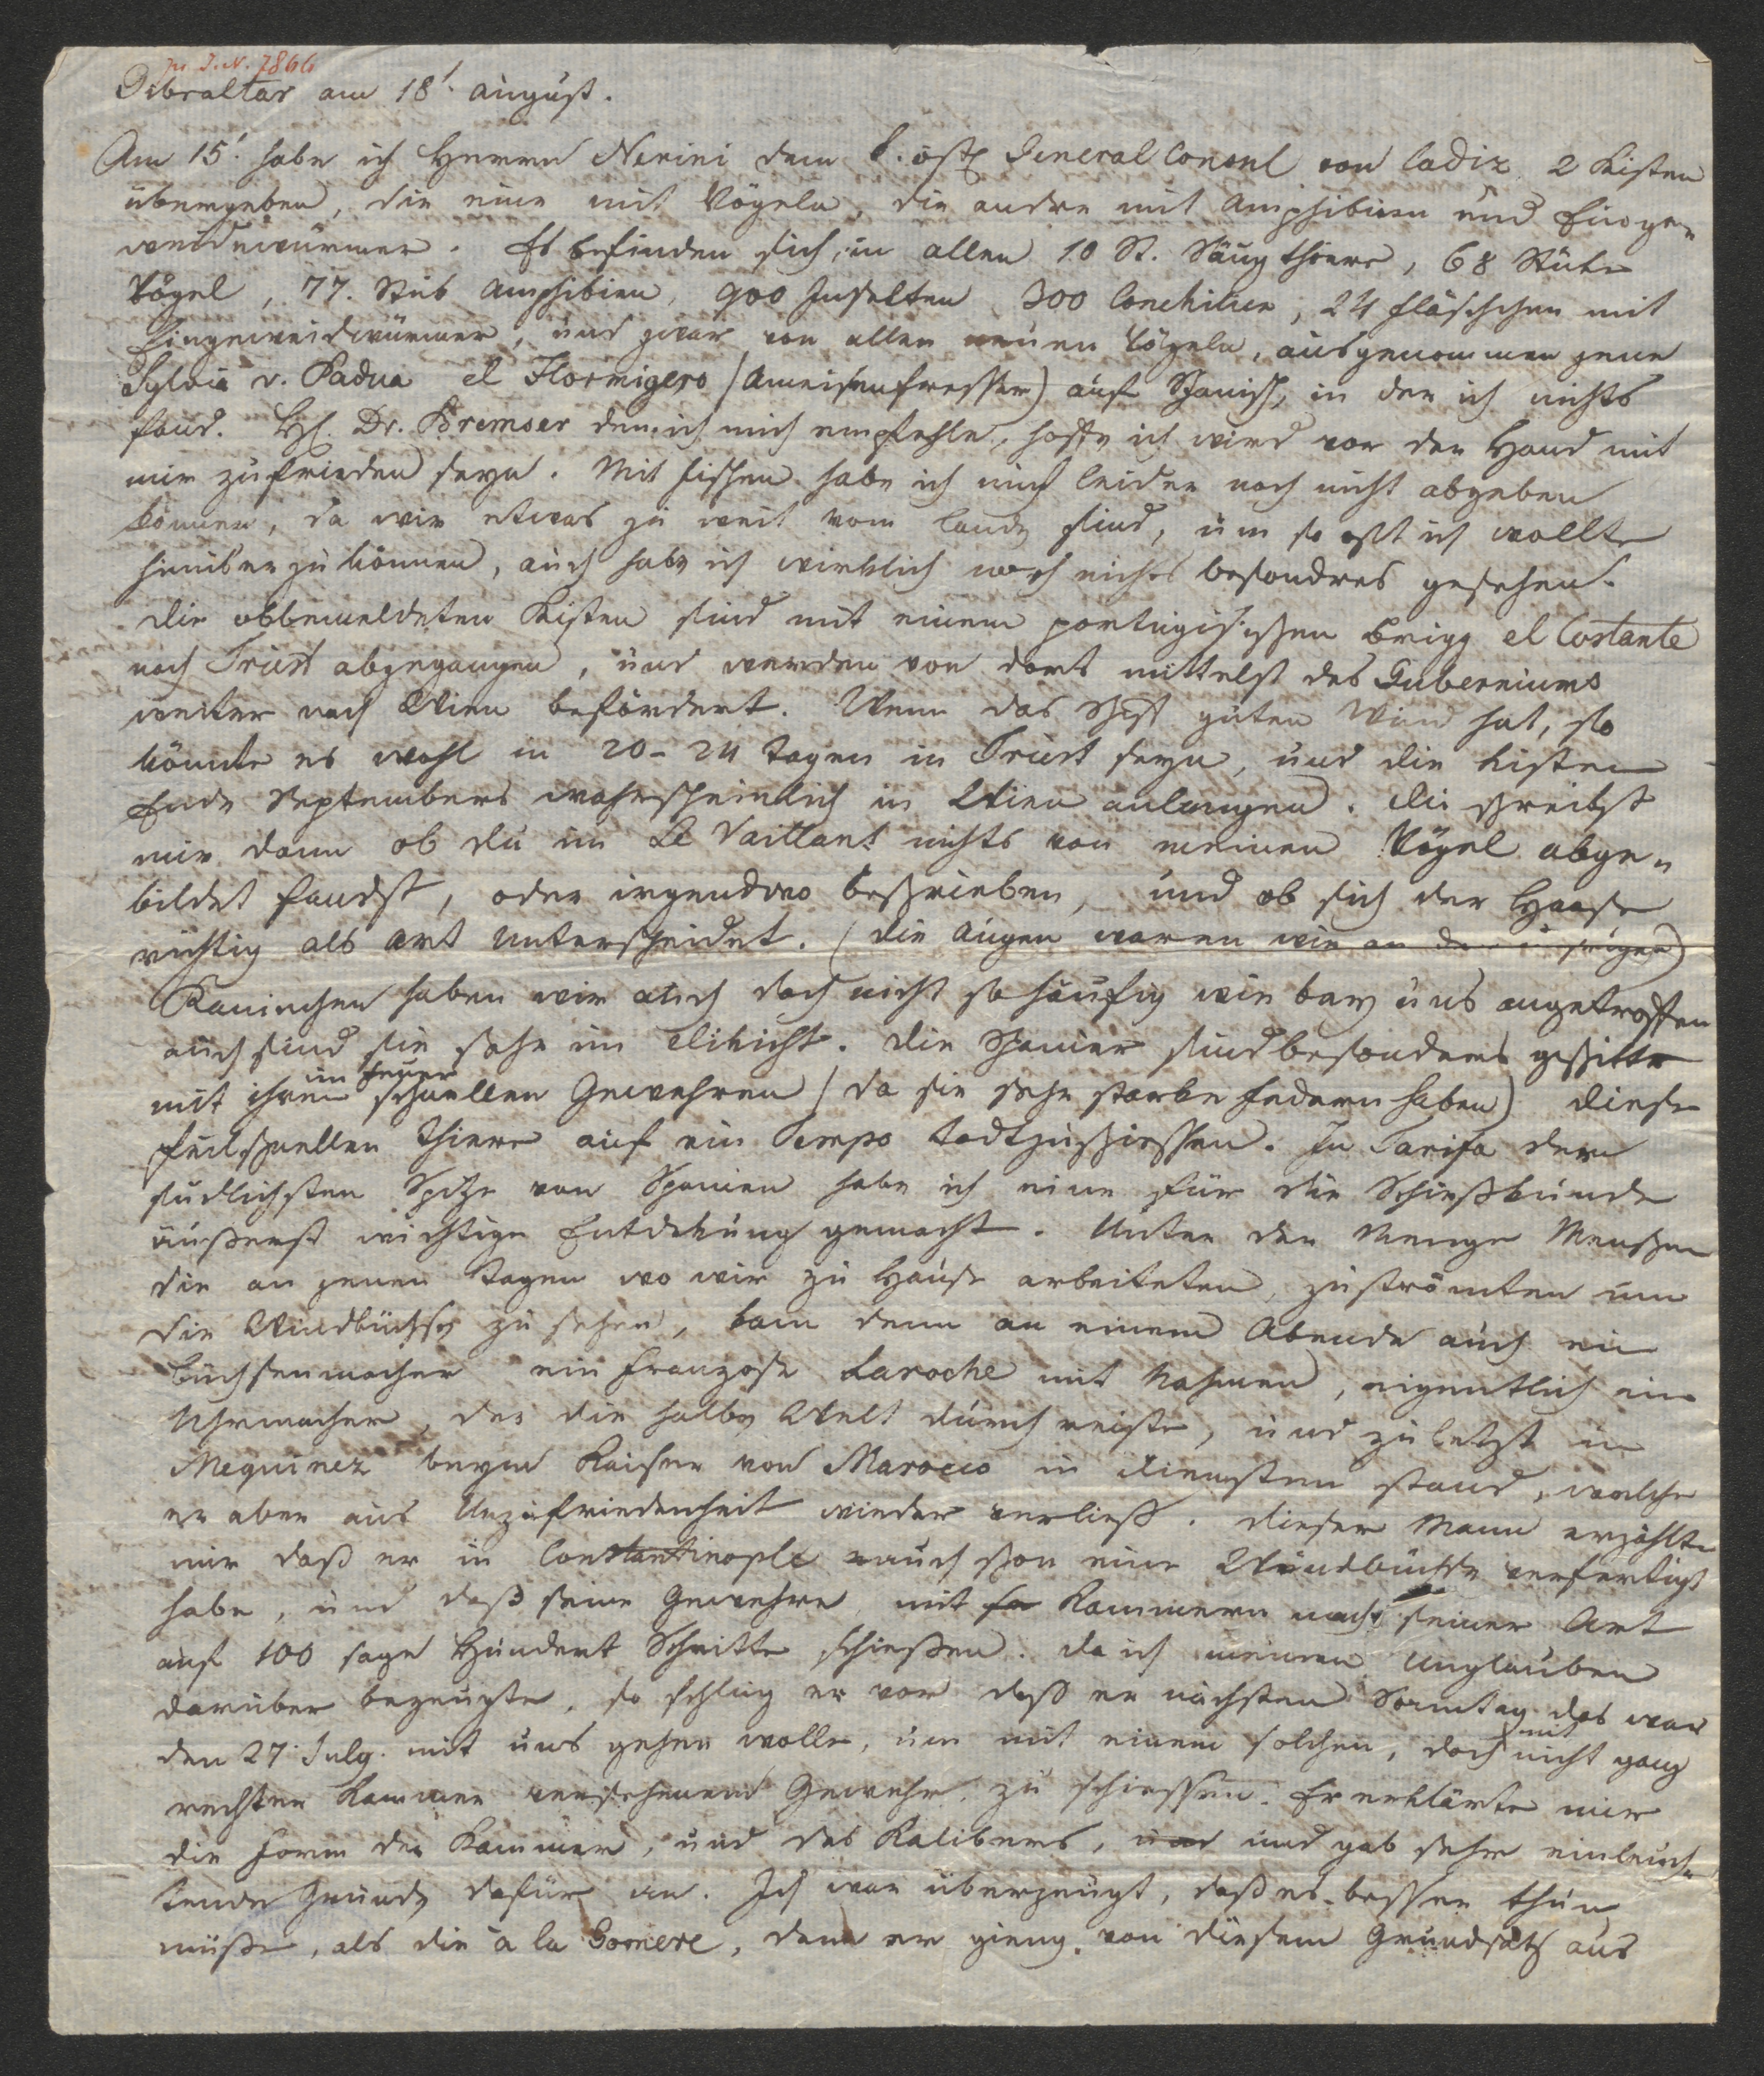 pr. I.N. 7866
Gibraltar am 18t. august.
Am 15t. habe ich Herrn Nerini dem k. östr. General Consul von Cadix 2 Kisten
übergeben, die eine mit Vögeln, die andre mit Amphibien und Einge„
weidewürmer. Es befinden sich, in allen 10 St. Säugthiere, 68 Stüke
Vögel, 77. Stük Amphibien, 900 Insekten 300 Conchilien, 24 fläschchen mit
Eingeweidwürmer, und zwar von allen neuen Vögeln, ausgenommen jene
Sylvia v. Padua el Hormigero (Ameisenfresser) auf Spanisch, in der ich nichts
fand. H. Dr. Bremser dem ich mich empfehle, hoffe ich wird vor der Hand mit
mir zufrieden seyn. Mit Fischen habe ich mich leider noch nicht abgeben
können, da wir etwas zu weit vom lande sind, um so oft ich wollte
hinüber zu können, auch habe ich wirklich noch nichts besondres gesehen.
Die obbemeldeten Kisten sind mit einem portugisischen Brigg el Costante
nach Triest abgegangen, und werden von dort mittelst des Guberniums
weiter nach Wien befördert. Wenn das Schiff guten Wind hat, so
könnte es wohl in 20-24 Tagen in Triest seyn, und die Kisten
Ende Septembers wahrscheinlich in Wien anlangen. Du schreibst
mir dann ob du im Le Vaillant nichts von meinen Vögel abge„
bildet fandst, oder irgendwo beschrieben, und ob sich der Haase
richtig als Art unterscheidet. (die Augen waren wie an
Kaninchen haben wir auch doch nicht so häufig wie bey uns angetroffen
auch sind sie sehr im Dikicht. Die Spanier sind besonders geschikt
mit ihren im feuer schnellen Gewehren (da sie sehr starke Federn haben) diese
schnellen Thiere auf ein Tempo todtzuschiessen. In Tarifa der
südlichsten Spitze von Spanien habe ich eine für die Schießkunde
äußerst wichtige Entdekung gemacht. Unter der Menge Menschen
die an jenen Tagen wo wir zu Hause arbeiteten, zuströmten um
die Windbüchse zu sehen, kam denn an einem Abende auch ein
Büchsenmacher ein Franzose Laroche mit Nahmen, eigentlich ein
Uhrmacher, der die halbe Welt durchreiste, und zuletzt in
Mequinez beym Kaiser von Marocco in Diensten stand, welche
er aber aus Unzufriedenheit wieder verließ. Dieser Mann erzählte
mir daß er in Constantinople auch schon eine Windbüchse verfertigt
habe, und daß seine Gewehre, mit Kammern nach seiner Art
auf 100 sage Hundert Schritte schießen. Da ich meinen Unglauben
darüber bezeugte, so schlug er vor daß er nächsten Sonntag das war
den 27t. July. mit uns gehen wolle, um mit einem solchen, doch mit nicht ganz
rechter Kammer versehenem Gewehr, zu schiessen. Er erklärte mir
die Form der Kammer, und des Kalibers, und und gab sehr einleuch„
tende Gründe dafür an. Ich war überzeugt, daß es besser thun
müße, als die à la Gomere, denn er gieng von diesem Grundsatz aus